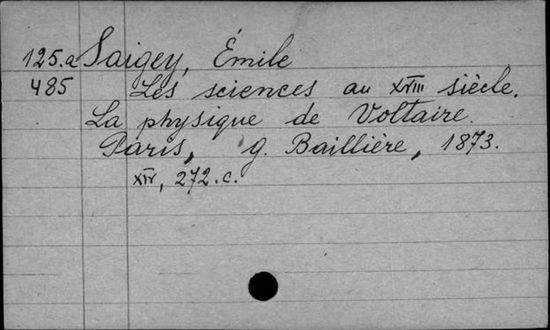 125.a Saigey, Émile
485 Les sciences au XVIII siècle.
La physique de Voltaire.
Paris, G. Baillière, 1873.
XIV, 272.c.